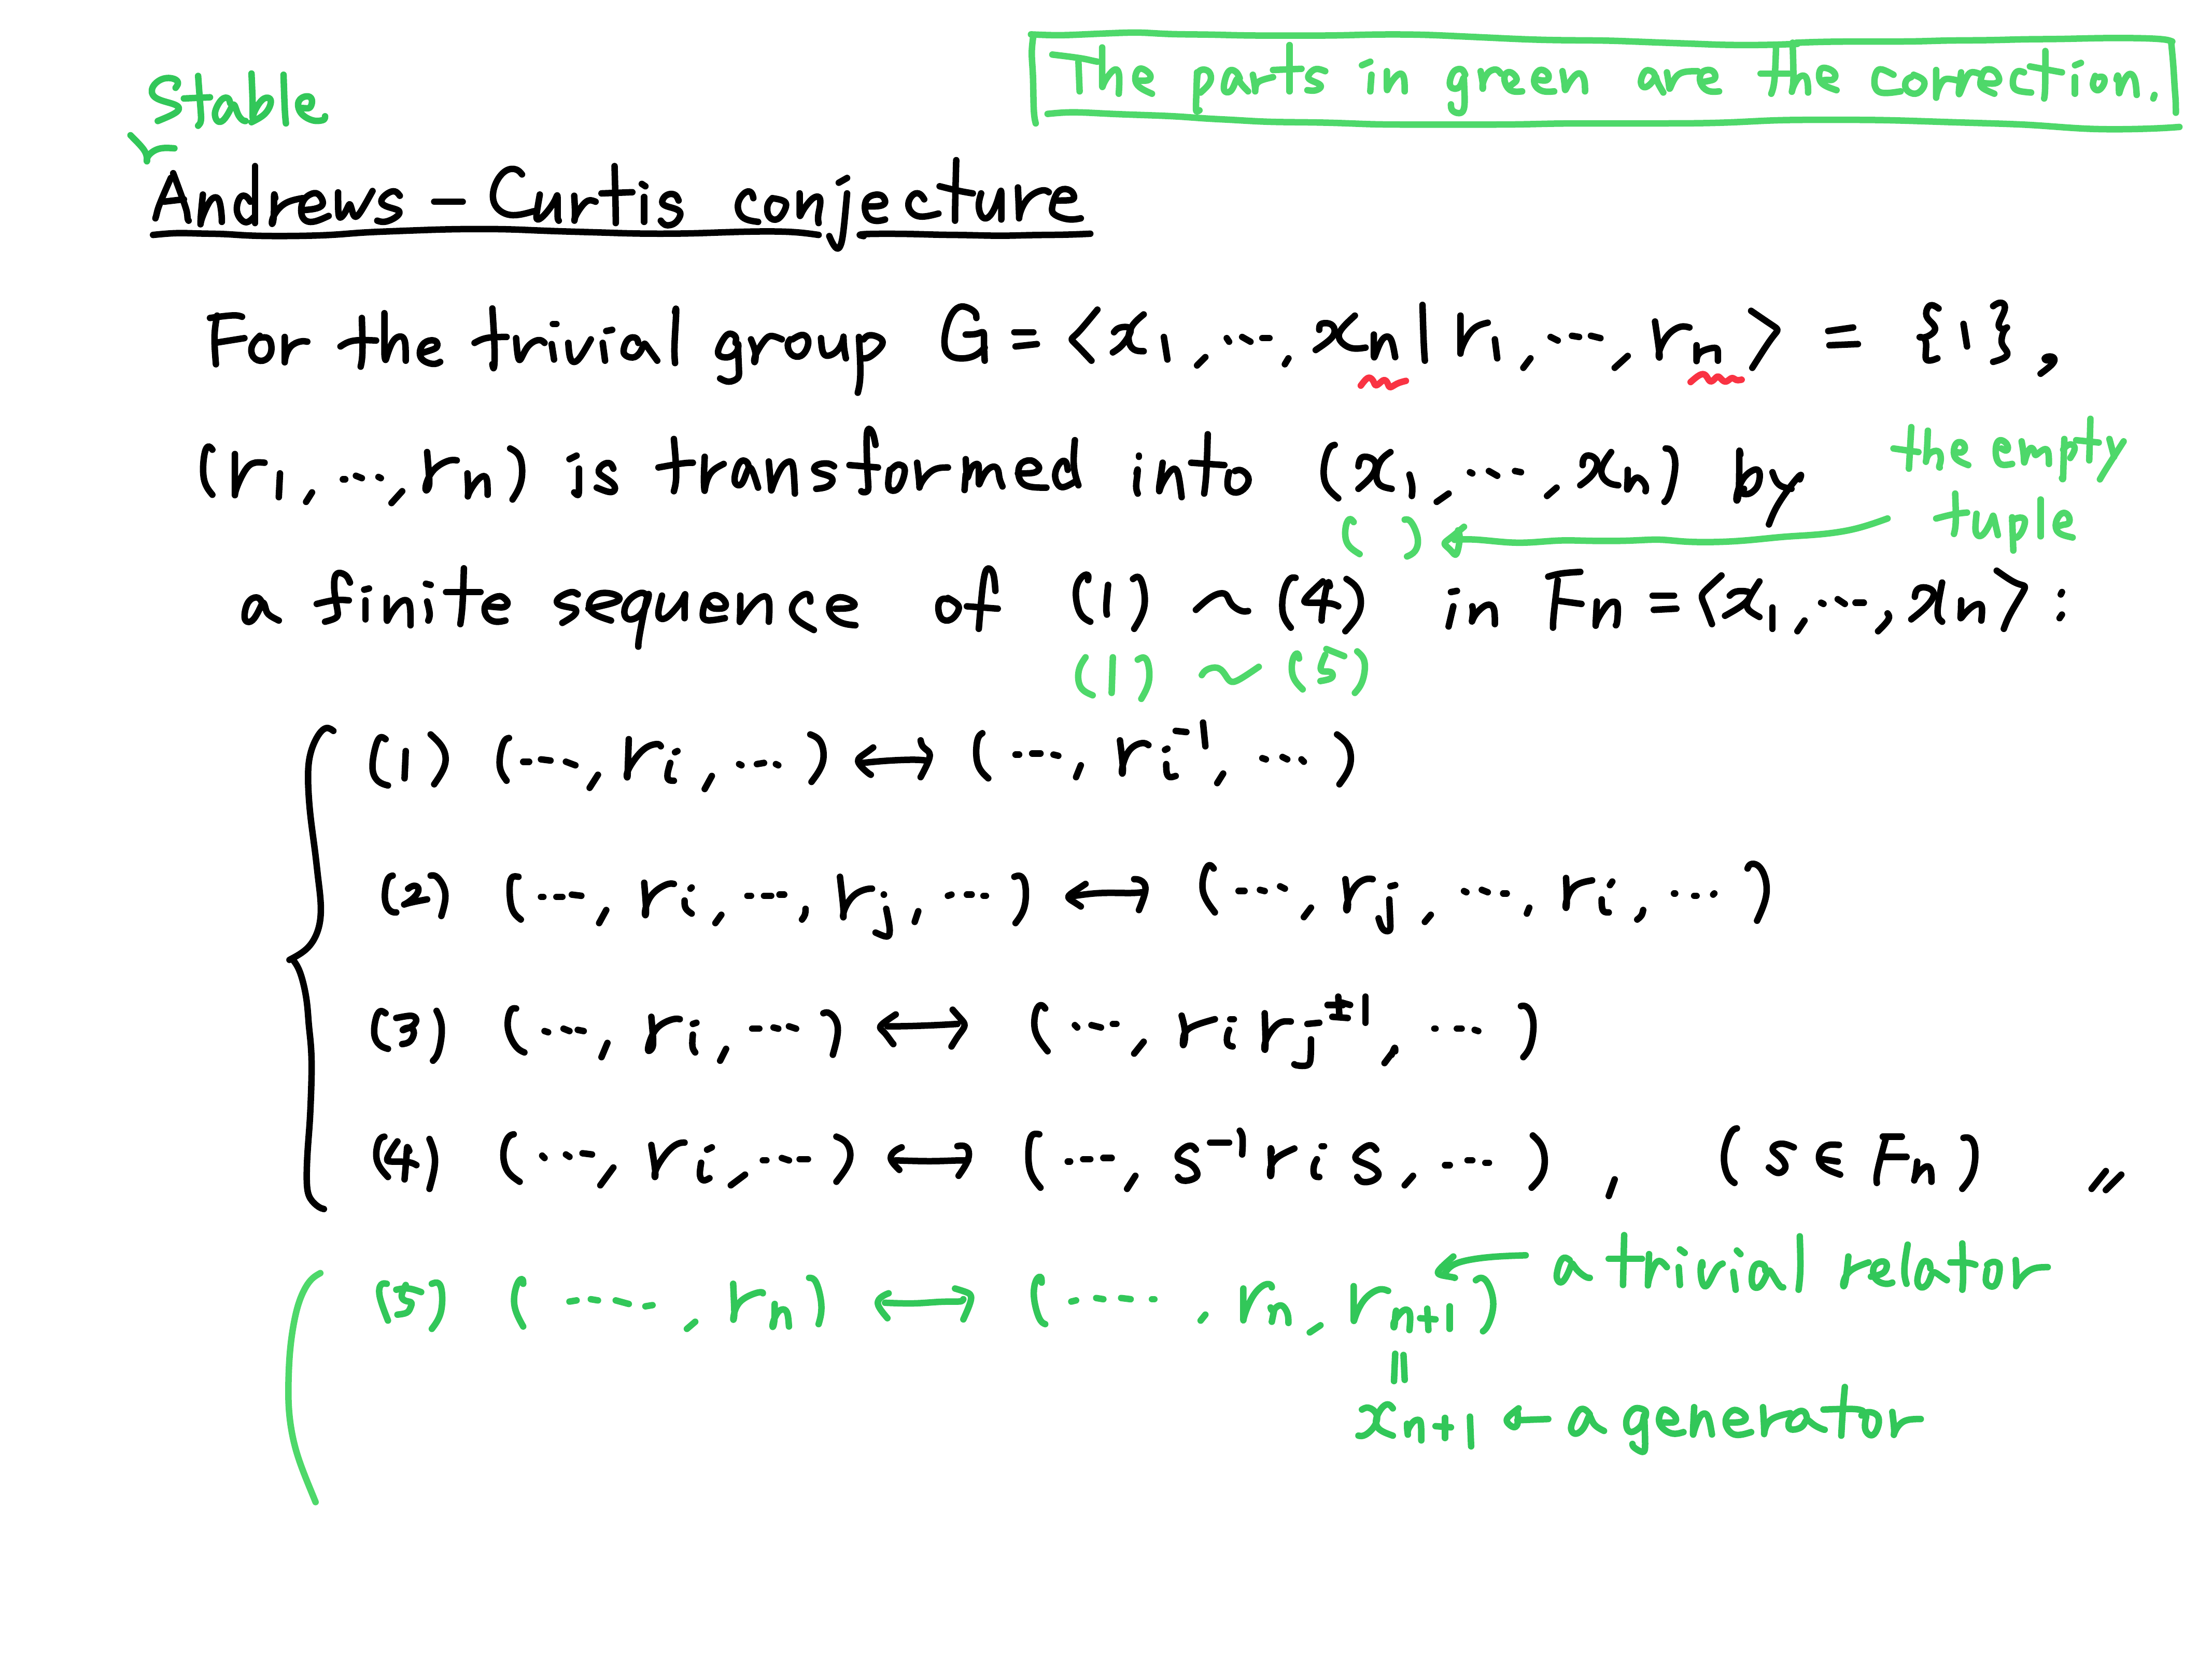 The parts in green are the correction.
Stable
Andrews-Curtis conjecture
For the trivial group G = <x₁, ⋯, xₙ | r₁, ⋯, rₙ> = {1},
(r₁, ⋯, rₙ) is transformed into (x₁, ⋯, xₙ) by
the empty
tuple
( ) ←
a finite sequence of (1) ~ (4) in Fₙ = <x₁, ⋯, xₙ> :
(1) ~ (5)
(1) (⋯, rᵢ, ⋯) ↔ (⋯, rᵢ⁻¹, ⋯)
(2) (⋯, rᵢ, ⋯, rⱼ, ⋯) ↔ (⋯, rⱼ, ⋯, rᵢ, ⋯)
(3) (⋯, rᵢ, ⋯) ↔ (⋯, rᵢ rⱼ^±1, ⋯)
(4) (⋯, rᵢ, ⋯) ↔ (⋯, s⁻¹ rᵢ s, ⋯) , (s ∈ Fₙ) 〃
(5) (⋯, rₙ) ↔ (⋯, rₙ, rₙ₊₁) ← a trivial relator
=
xₙ₊₁ ← a generator